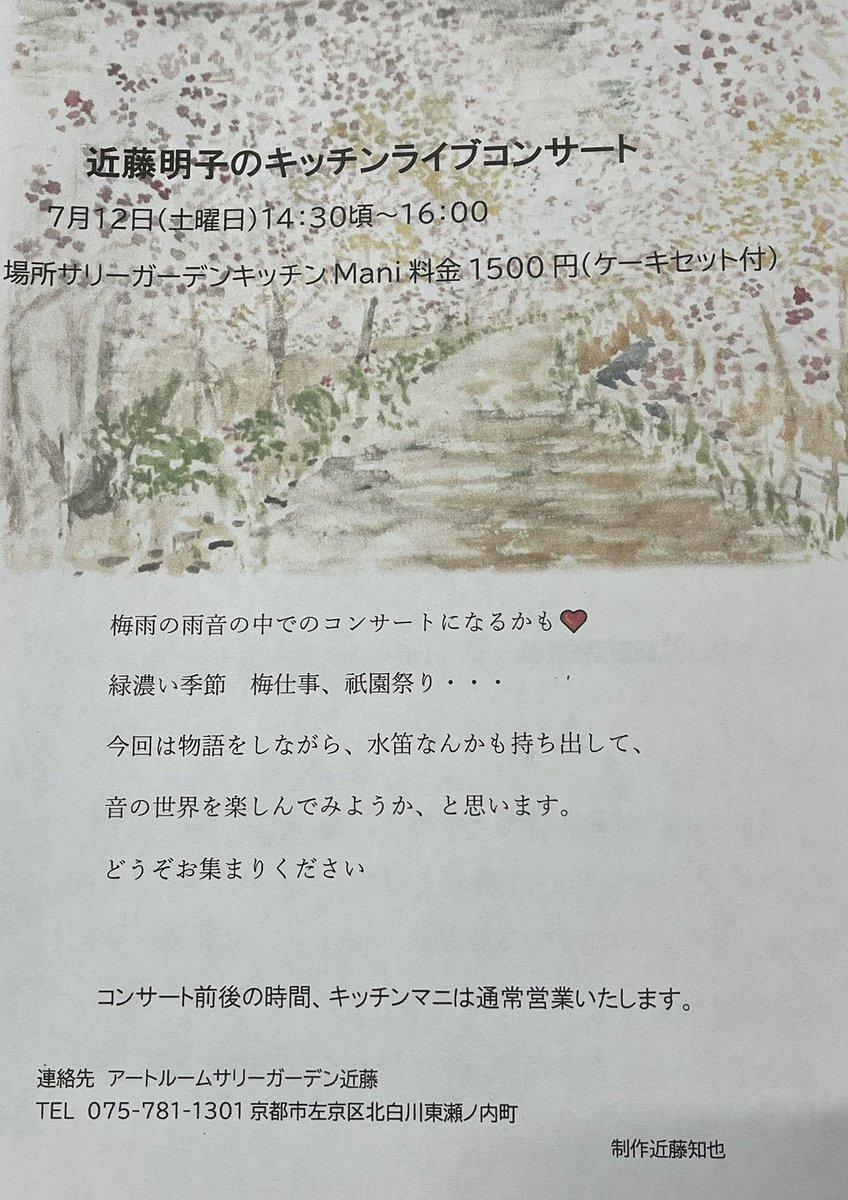 近藤明子のキッチンライブコンサート
7月12日(土曜日)14:30頃～16:00
場所サリーガーデンキッチンMani 料金 1500 円(ケーキセット付)
梅雨の雨音の中でのコンサートになるかも❤
緑濃い季節　梅仕事、祇園祭り・・・
今回は物語をしながら、水笛なんかも持ち出して、
音の世界を楽しんでみようか、と思います。
どうぞお集まりください
コンサート前後の時間、キッチンマニは通常営業いたします。
連絡先　アートルームサリーガーデン近藤
TEL 075-781-1301 京都市左京区北白川東瀬ノ内町
制作近藤知也